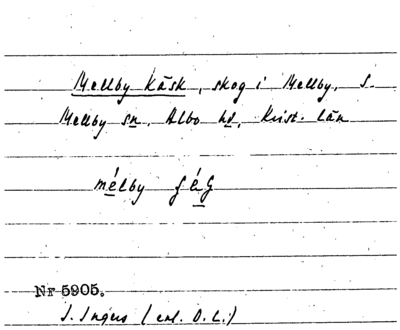 Mellby Käsk, skog i Mellby, S.
Mellby sn. Albo hd, Krist. län
mélby
Nr 5905.
I. Ingers (enl. O. L.)